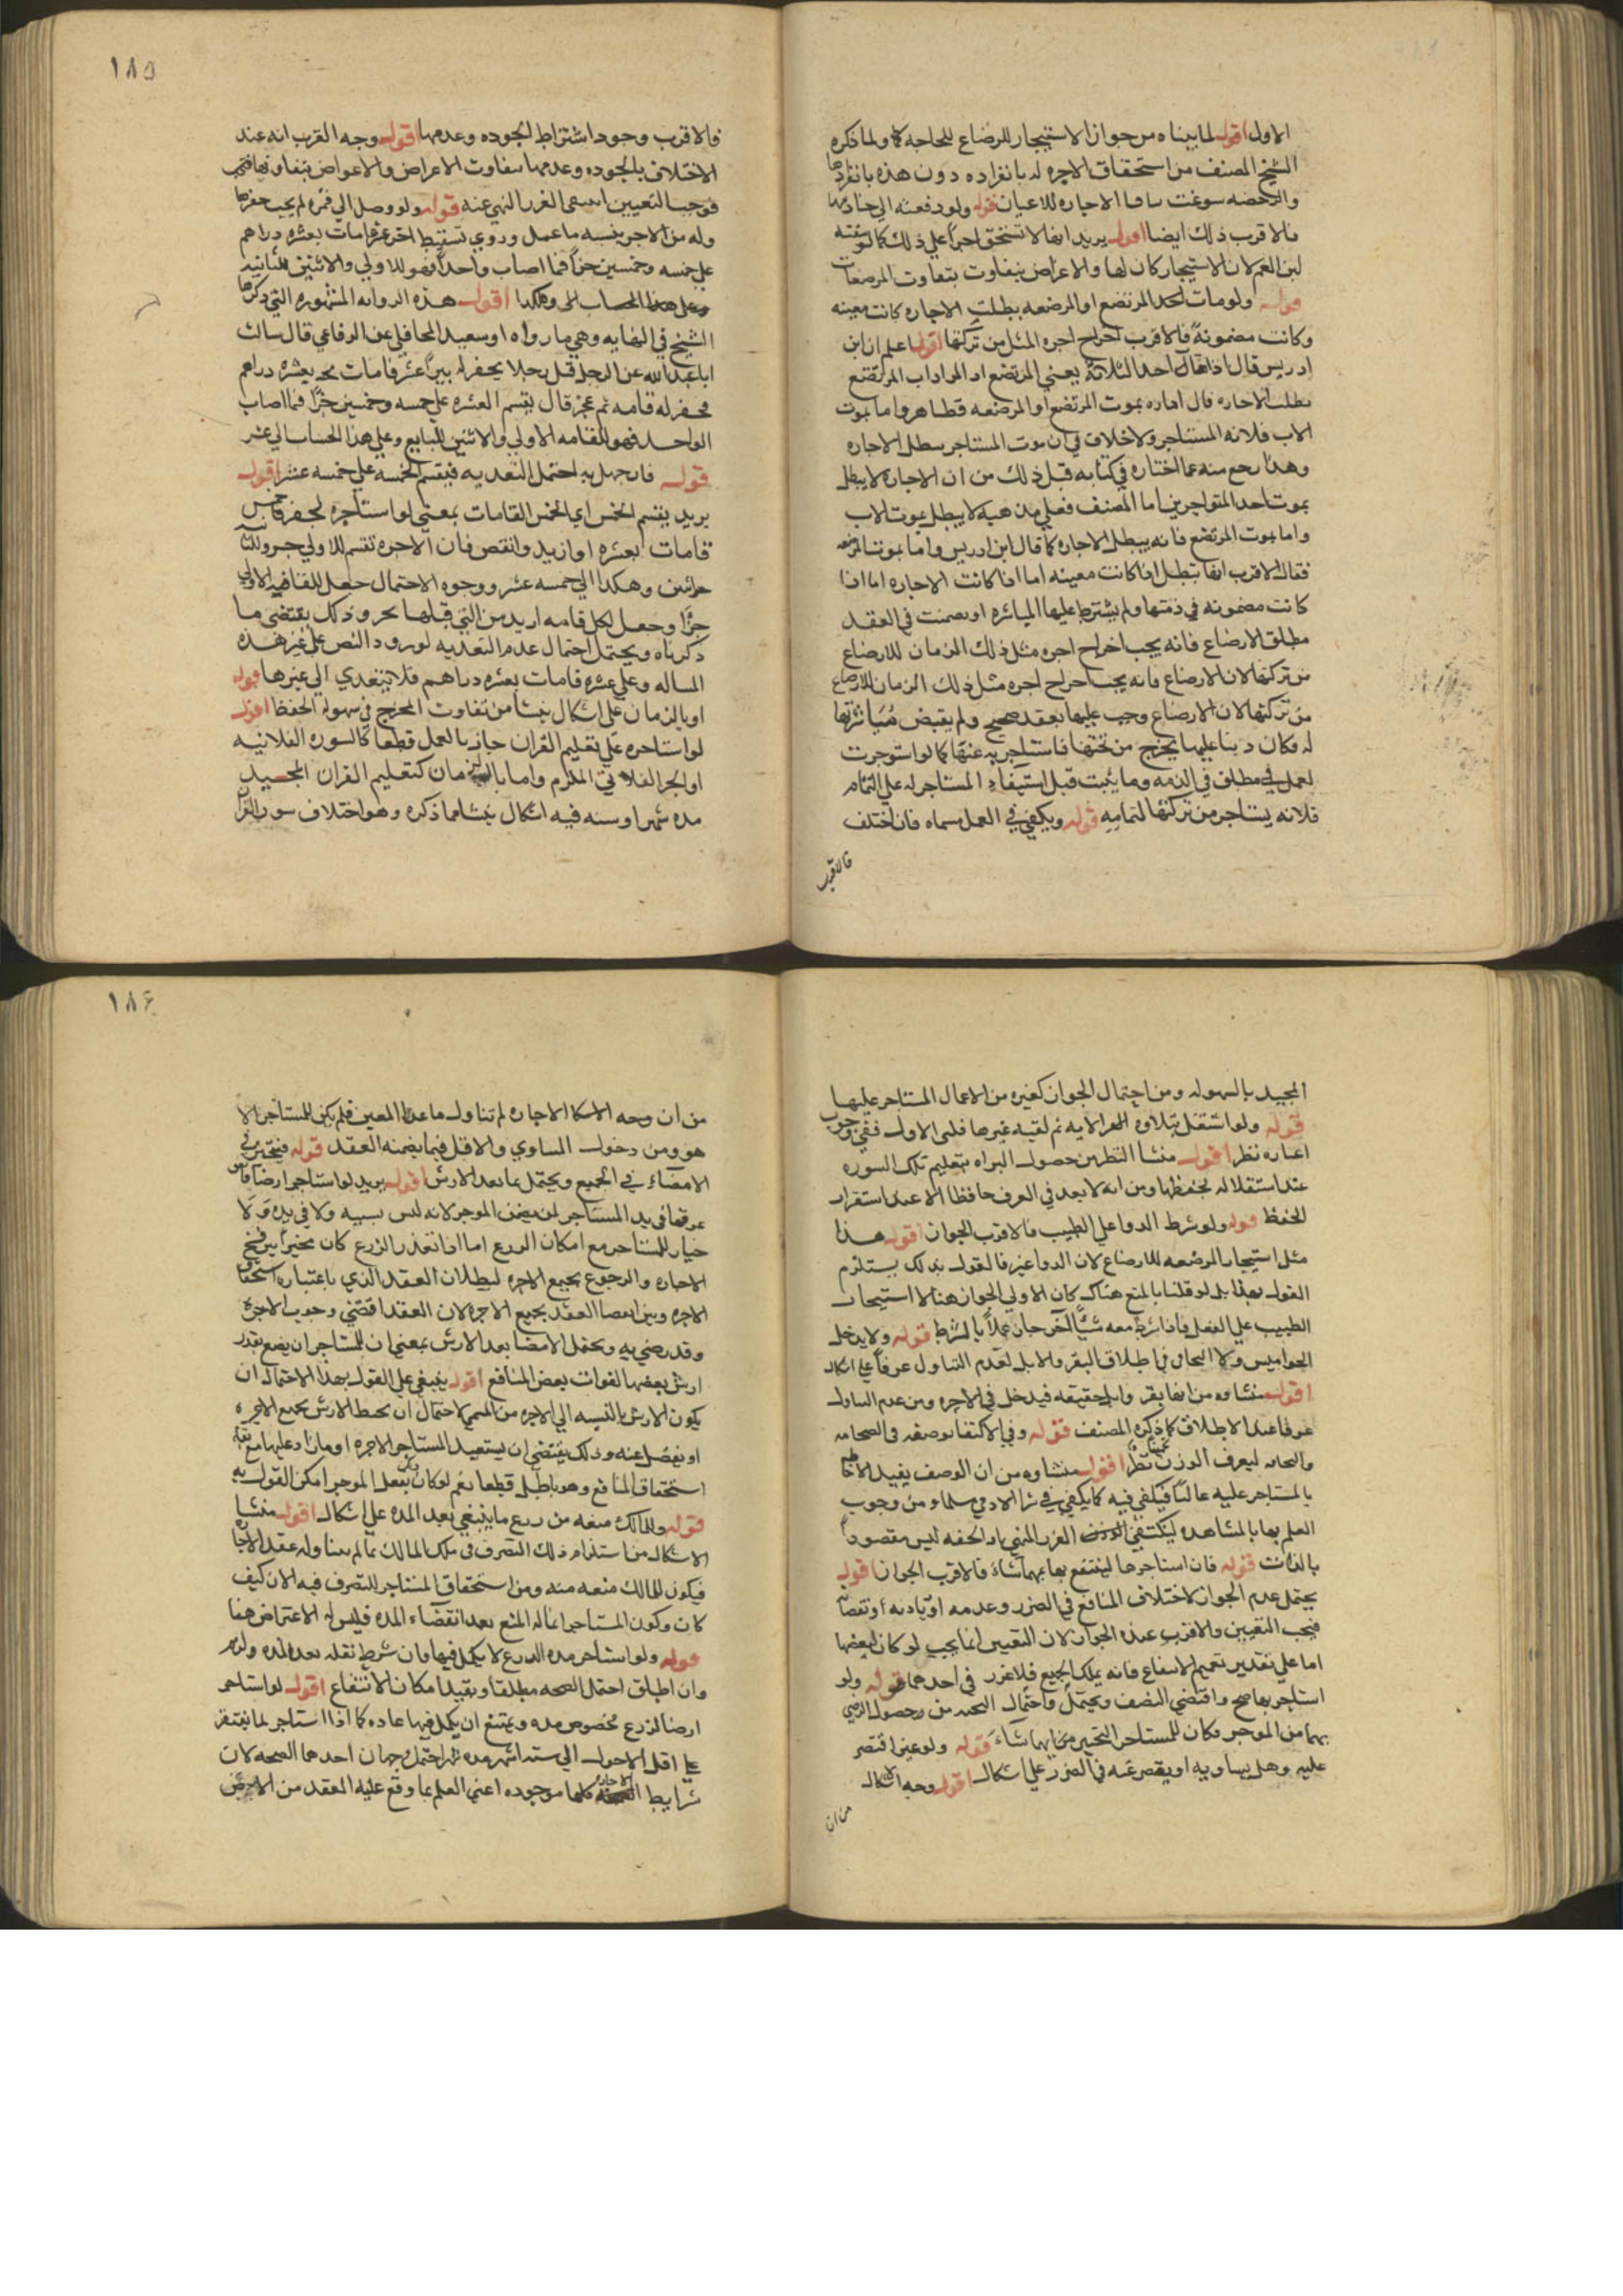 الاول اقول لما بيناه من جواز الاستيجار للرضاع للحاجه كما ولما ذكره
الشيخ المصنف من استحقاق الاجره له بانفراده دون هذه بانفرادها
والرخصه سوغت الاجاره للاعيان قوله ولو دفعته الى خادمتها
فالاقرب ذلك ايضا اقول يريد انها لا تستحق اجرا على ذلك كما لو سقته
لبن الغنم لان الاستيجار كان لها والاعراض تتفاوت بتفاوت المرضعات
قوله ولو مات احد المرتضع او المرضعه بطلت الاجاره كانت معينه
وكانت مضمونة فالاقرب اخراج اجره المثل من تركتها اقول اعلم ان ابن
ادريس قال اذا مات احد الثلاثة يعني المرتضع او المرضعه او اب المرتضع
بطلت الاجاره قال اما بموت المرتضع او المرضعه فظاهر واما بموت
الاب فلانه المستاجر ولا خلاف في ان موت المستاجر يبطل الاجاره
وهذا رجع منه عما اختاره في كتابه قبل ذلك من ان الاجارة لا يبطل
بموت احد المتواجرين اما المصنف فعلى مذهبه لا يبطل بموت الاب
واما بموت المرتضع فانه يبطل الاجاره كما قال ابن ادريس واما بموت المرضعه
فقال الاقرب انها تبطل اذا كانت معينه اما اذا كانت الاجاره اما اذا
كانت مضمونه في ذمتها ولم يشترط عليها المباشره او يضمنت في العقد
مطلق الارضاع فانه يجب اخراج اجره مثل ذلك الزمان للارضاع
من تركتها لان الارضاع فانه يجب اخراج اجره مثل ذلك الزمان للارضاع
من تركتها لان الارضاع وجب عليها بعقد صحيح ولم يقبض مباشرتها
له فكان دينا عليها يخرج من تركتها فاستاجر به عنها كما لو استوجرت
لعمل مطلق في الذمه وماتت قبل استيفاء المستاجر له على التمام
فلانه يستاجر من تركتها لتمامه قوله ويكفي في العمل مسماه فان اختلف
فالاقرب
١٨٥
فالاقرب وجود اشتراط الجوده وعدمها اقول وجه القرب انه عند
الاختلاف بالجوده وعدمها تتفاوت الاعراض والاعواض بتفاوتها فتى
فوجب التعيين لينتفى الغرر المنهي عنه قوله ولو وصل الى قمره لم يجب حفرها
وله من الاجر بنسبه ما عمل وروي تسقيط اجر عشر قامات بعشره دراهم
على خمسه وخمسين جزأ فما اصاب واحدا فهو للاولى والاثنين للثانيه
وعلى هذا الحساب الى وهكذا اقول هذه الروايه المشهوره التي ذكرها
الشيخ في النهايه وهي ما رواه ابو سعيد المحافلي عن الرفاعي قال سالت
ابا عبد الله عن الرجل قبل رجلا يحفر له بيرا عشر قامات بعشره دراهم
فحفر له قامه ثم عجز قال يقسم العشره على خمسه وخمسين جزا فما اصاب
الواحد فهو للقامه الاولى والاثنين للتابع وعلى هذا الحساب الى عشر
قوله فان جهل به احتمل التعديه فيقسم الخمسه على خمسه عشر اقول
يريد بقسم الخمس اي الخمس القامات بمعنى لو استاجره لحفر خمس
قامات بعشره او ازيد وانقص فان الاجره تقسم للاولى جزو للثانيه
جزئين وهكذا الى خمسه عشر ووجوه الاحتمال جعل للقامه الاولى
جزا وجعل لكل قامه ازيد من التي قبلها بجزو وذلك يقتضى ما
ذكرناه ويحتمل احتمال عدم التعديه لورود النص على غير هذه
المساله وعلى عشره قامات بعشره دراهم فلا يتعدي الى غيرها قوله
او بالزمان على اشكال ينشا من تفاوت المخرج في سهوله الحفظ اقول
لو استاجره على تعليم القران جاز بالعمل قطعا كالسوره الفلانيه
او الجز الفلاني الملزم واما بالزمان كتعليم القران المجيد
مده شهر او سنه فيه اشكال ينشا مما ذكره وهو اختلاف سور القران
المجيد بالسهوله ومن احتمال الجواز كغيره من الاعمال المستاجر عليها
قوله ولو اشتغل بتلاوه الايه ثم لقيه غيرها فنسى الاول ففي وجوب
اعاره نظر اقول منشا النظر من حصول البراه بتعليم تلك السوره
عند استقلاله بحفظها ومن انه لا يعد في العرف حافظا الا عند استقرار
الحفظ قوله ولو شرط الدوا على الطبيب فالاقرب الجواز اقول هذا
مثل استيجار المرضعه للارضاع لان الدوا عين فالقول بذلك يستلزم
القول بهذا بل لو قلنا بالمنع هناك كان الاولى الجواز هنا لاستيجار
الطبيب على الفعل فاذا شرط معه شيا اخر جاز عملا بالشرط قوله ولا يدخل
الجواميس ولا البخاتي في اطلاق البقر والابل لعدم التناول عرفا على اشكال
اقول منشاوه من انها بقر وابل حقيقه فيدخل في الاجره ومن عدم التناول
عرفا عند الاطلاق كما ذكره المصنف قوله وفي الاكتفا بوصفه في الضخامه
والنحافه ليعرف الوزن تخمينا نظر اقول منشاوه من ان الوصف يفيد الاحاطه
بالمستاجر عليه غالبا فيكفى فيه كما يكفي في شرا الادمي سلما ومن وجوب
العلم بها بالمشاهده لينتفي الغرر المنهي اذ الخفه ليس مقصودا
بالذات قوله فان استاجرها لينتفع بها بهما شاء فالاقرب الجواز اقول
يحتمل عدم الجواز لاختلاف المنافع في الضرر وعدمه او زيادته او نقصانه
فيجب التعيين والاقرب عنده الجواز لان التعيين انما يجب لو كان لبعضها
اما على تقدير تعميم الانتفاع فانه يملك الجميع فلا غرر في احدهما قوله ولو
استاجر بها صح واقتضى النصف ويحتمل واحتمال التخيير من وحصول الرضى
بهما من الموجر فكان للمستاجر التخير من ايهما شاء قوله ولو عين اقتصر
عليه وهل يساويه او يقصر عنه في الضرر على اشكال اقول وجه الاشكال
من ان
١٨٦
من ان وجه الاجاره لم تتناول ما عدا المعين فلم يكن للمستاجر الا
هو ومن دخول المساوي والاقل فيما يضمنه العقد قوله فيتخير في
الامضاء في الجميع ويحتمل بما بعد الارش اقول يريد لو استاجر ارضا
غرقها في يد المستاجر لم يضمن الموجر لانه ليس بسببه ولا في يده ولا
خيار للمستاجر مع امكان الزرع اما اذا تعذر الزرع كان مخيرا بين فسخ
الاجاره والرجوع بجميع الاجره لبطلان العقد الذي باعتباره استحقا
الاجره وبين امضا العقد بجميع الاجره لان العقد اقتضي وجوب الاجرة
وقد رضي به ويحتمل الامضا بعد الارش بمعنى ان للمستاجر ان يضع بقدر
ارش بعضها لفوات بعض المنافع اقول ينبغي على القول بهذا الاحتمال ان
يكون الارش بالنسبه الى الاجره من المسمى لاحتمال ان يحيط الارش بجميع الاجره
او يفضل عنه وذلك يقتضي ان يستعيد المستاجر الاجره او مازاد عليها مع بقاء
استحقاق المنافع وهو باطل قطعا نعم لو كان ذلك بفعل الموجر امكن القول به
قوله وللمالك منعه من زرع ما ينبغي بعد المده على اشكال اقول منشا
الاشكال من استلزام ذلك التصرف في ملك المالك بما لم يتناوله عقد الاجاره
فيكون للمالك منعه منه ومن استحقاق المستاجر للتصرف فيه الان كيف
كان وكون المستاجر انما له المنع بعد انقضاء المده فليس له الاعتراض هنا
قوله ولو استاجر مده الزرع لا يكمل فيها فان شرط نقله بعد المده ولزم
وان اطلق احتمل الصحه مطلقا وبقيد امكان الانتفاع اقول لو استاجر
ارضا لزرع مخصوص مده ويمتنع ان يكمل فيها عاده كما اذا استاجر لما يفتقر
على اقل الاحول الى سته اشهر مده شهر احتمل وجهان احدهما الصحه لان
شرايط الاجاره كلها موجوده اعني العلم بما وقع عليه العقد من الارض